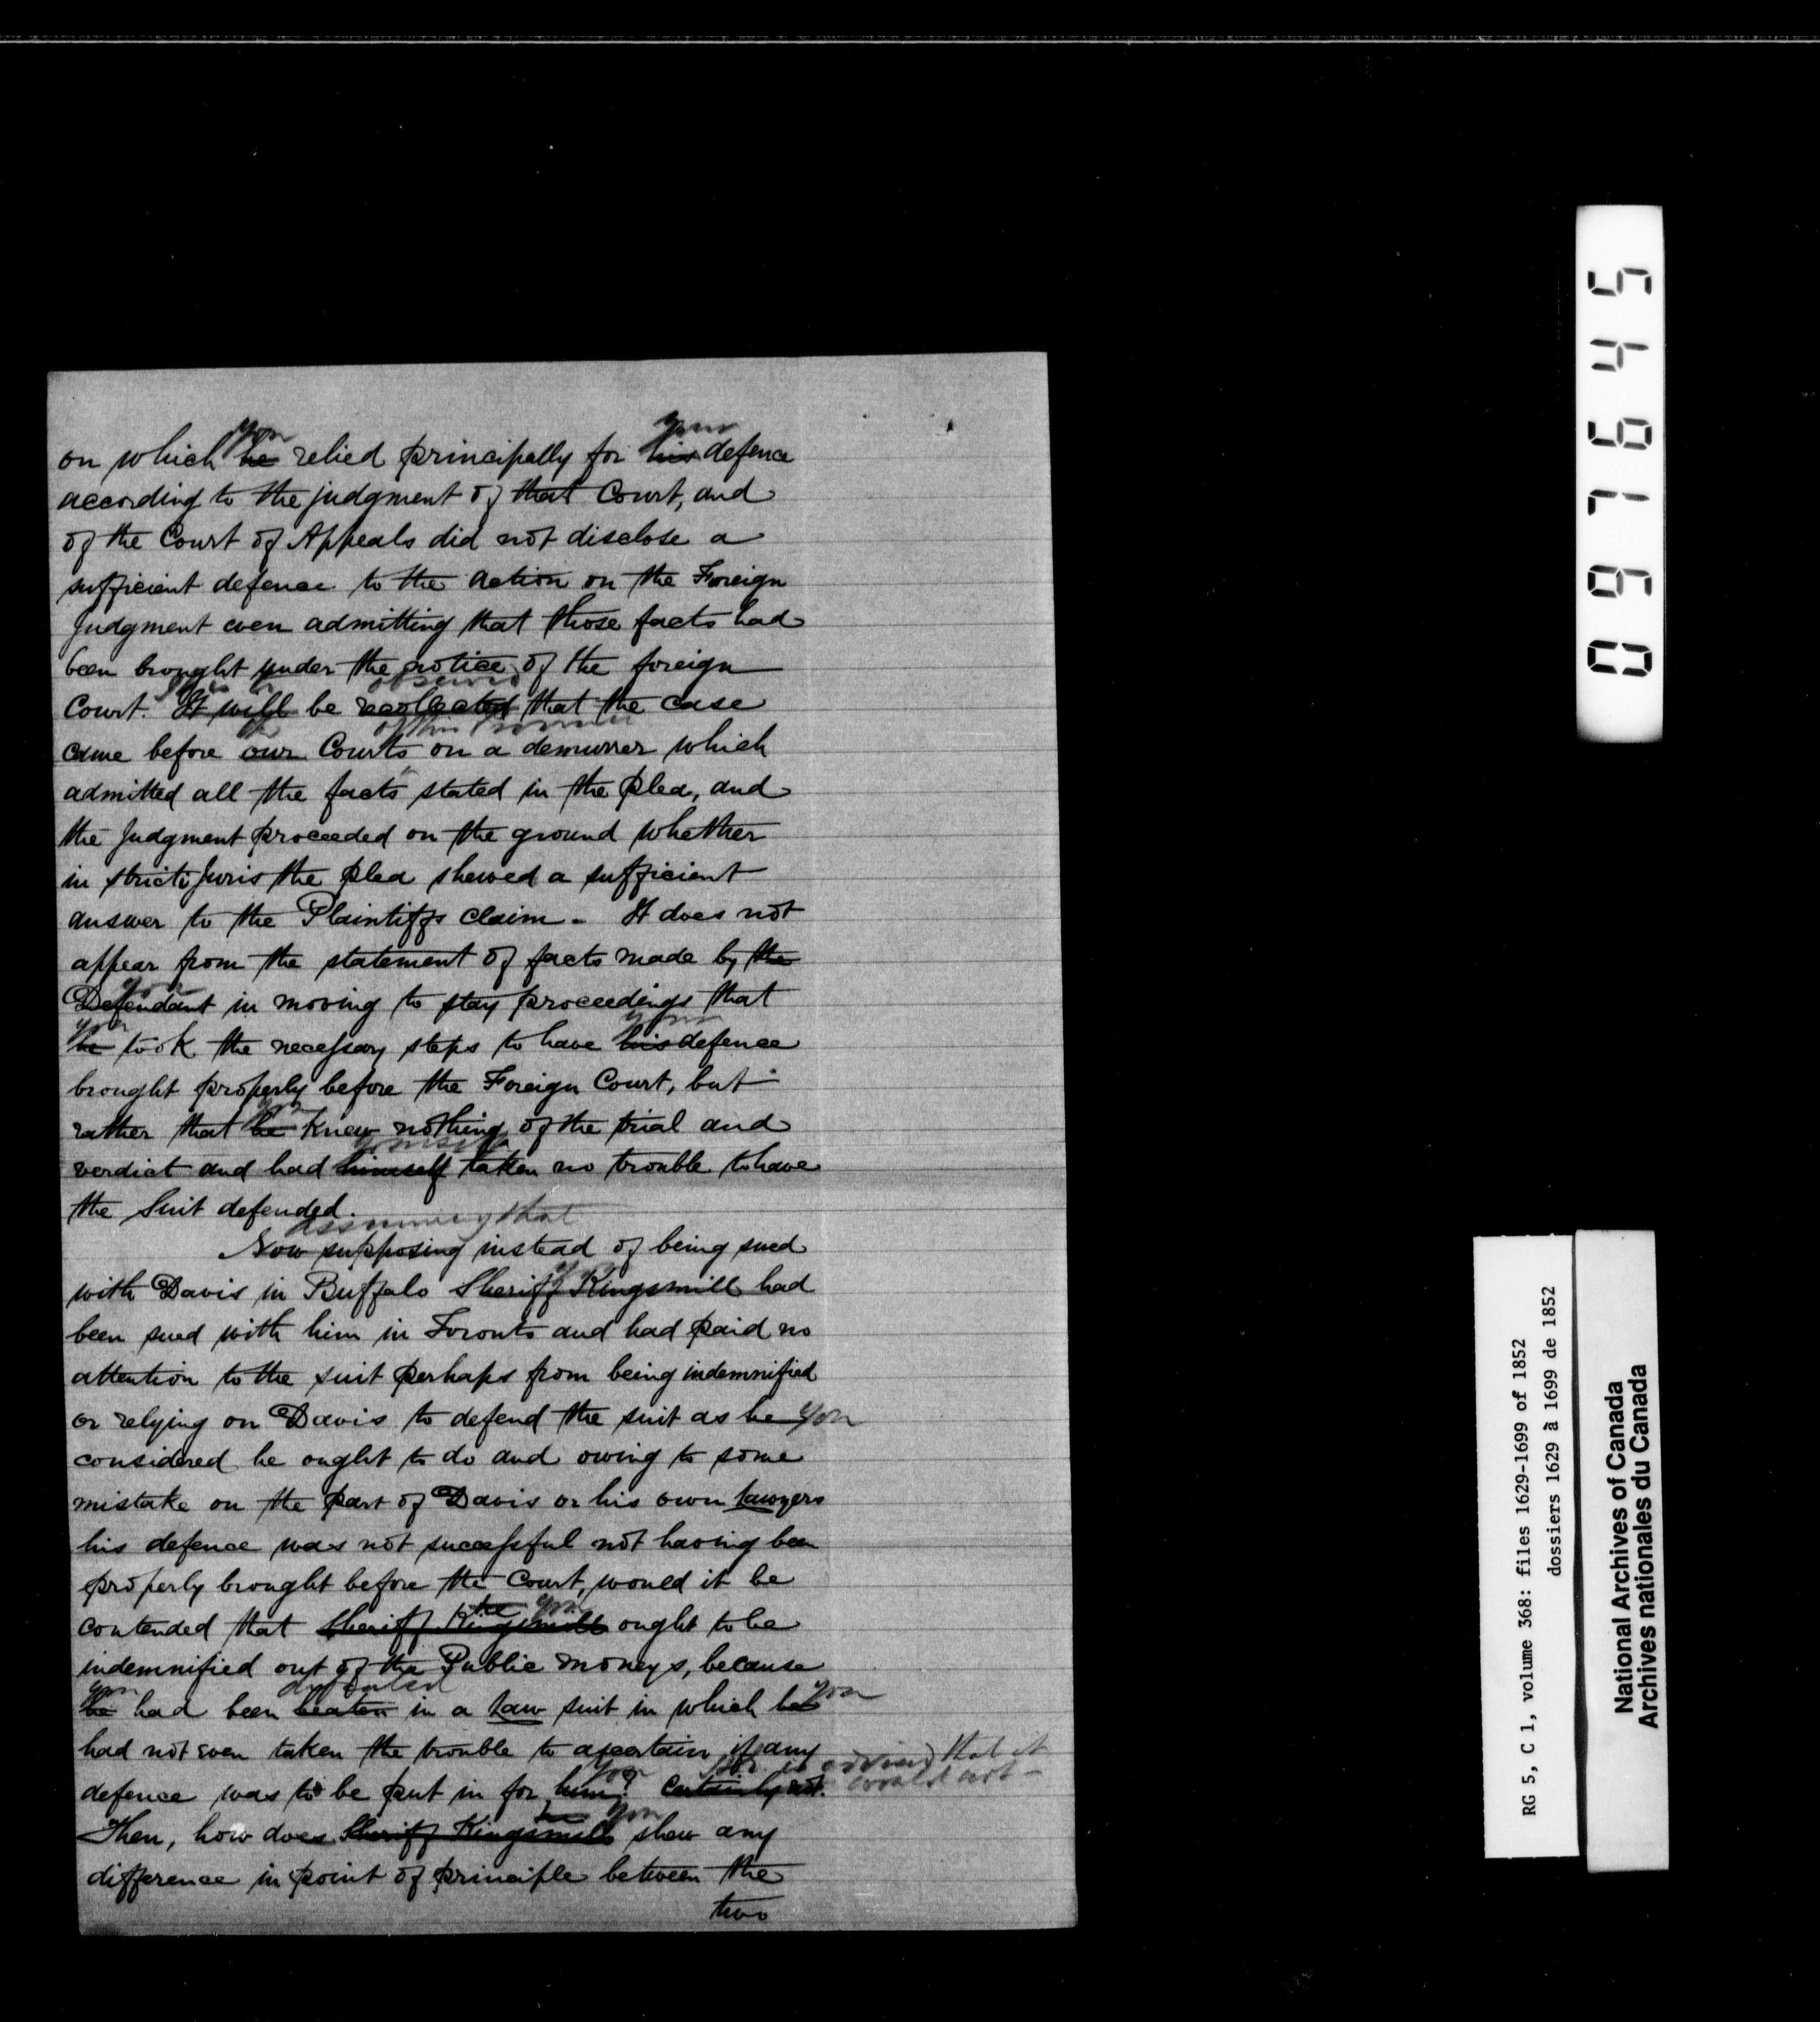 on which he you relied principally for his your defence
according to the judgment of that Court, and
of the Court of Appeals did not disclose a
sufficient defence to the action on the Foreign
Judgment even admitting that those facts had
been brought under the notice of the foreign
Court. It will be recollected observed that the case
came before our the Courts of this Province on a demurrer which
admitted all the facts stated in the plea, and
the Judgment proceeded on the ground whether
in stricti Juris the plea shewed a sufficient
answer to the Plaintiffs claim. It does not
appear from the statement of facts made by the
Defendant you in moving to stay proceedings that
he you took the necessary steps to have his your defence
brought properly before the Foreign Court, but
rather that he you knew nothing of the trial and
verdict and had himself yourself taken no trouble to have
the Suit defended.
Now supposing assuming that instead of being sued
with Davis in Buffalo Sheriff Kingsmill you had
been sued with him in Toronto and had paid no
attention to the suit perhaps from being indemnified
or relying on Davis to defend the suit as he you
considered he ought to do and owing to some
mistake on the part of Davis or his own Lawyers
his defence was not successful not having been
properly brought before the Court, would it be
contended that Sheriff Kingsmill he you ought to be
indemnified out of the Public moneys, because
he you had been beaten defeated in a Law suit in which he you
had not even taken the trouble to ascertain if any
defence was to be put in for him you? Certainly not. is advised that it would not -
Then, how does Sheriff Kingsmill he you shew any
difference in point of principle between the
two
097645
RG 5, C 1, volume 368: files 1629-1699 of 1852
dossiers 1629 à 1699 de 1852
National Archives of Canada
Archives nationales du Canada